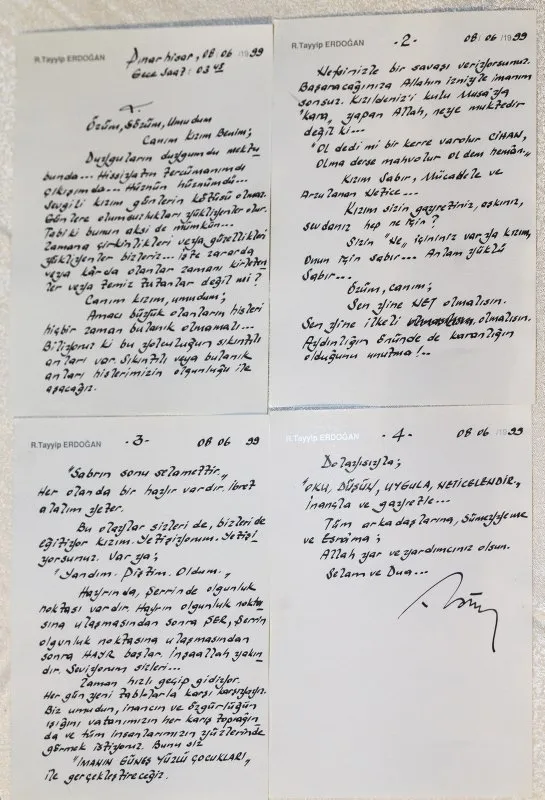 R.Tayyip ERDOĞAN
Pınarhisar, 08/06/1999
Gece Saat: 03 45
Özüm, Sözüm, Umudum
Canım Kızım Benim;
Duyguların duygumdu mektu
bunda... Hissiyatın tercümanımdı
çıkışımda... Hüznün hüznümdü...
Sevgili kızım günlerin kötüsü olmaz.
Günlere olumsuzlukları yükleyenler olur.
Tabi ki bunun aksi de mümkün...
Zamana çirkinlikleri veya güzellikleri
yükleyenler bizleriz... işte zararda
veya kârda olanlar zamanı kirleten
ler veya temiz tutanlar değil mi?
Canım kızım, umudum;
Amacı büyük olanların hisleri
hiçbir zaman bulanık olmamalı...
Biliyoruz ki bu yolculuğun sıkıntılı
anları var. Sıkıntılı veya bulanık
anları hislerimizin olgunluğu ile
aşacağız.
R.Tayyip ERDOĞAN -2- 08/06/1999
Nefsinizle bir savaşı veriyorsunuz.
Başaracağınıza Allahın izniyle imanım
sonsuz. Kızıldeniz'i kulu Musa'ya
"kara" yapan Allah, neye muktedir
değil ki...
"Ol dedi mi bir kerre varolur CİHAN,
Olma derse mahvolur ol dem hemân."
Kızım Sabır, Mücadele ve
Arzulanan Netice...
Kızım sizin gayretiniz, aşkınız,
sevdanız hep ne için?
Sizin "Ne, için"iniz var ya kızım,
Onun için sabır... Anlam yüklü
Sabır...
Özüm, canım;
Sen yine NET olmalısın.
Sen yine ilkeli olmalısın.
Aydınlığın önünde de karanlığın
olduğunu unutma!..
R.Tayyip ERDOĞAN -3- 08 06 99
"Sabrın sonu selamettir."
Her olanda bir hayır vardır. İbret
alalım yeter.
Bu olaylar sizleri de, bizleri de
eğitiyor kızım. Yetişiyorum. Yetişi
yorsunuz. Var ya;
"Yandım. Piştim. Oldum."
Hayrında, Şerrinde olgunluk
noktası vardır. Hayrın olgunluk nokta
sına ulaşmasından sonra ŞER, Şerrin
olgunluk noktasına ulaşmasından
sonra HAYR başlar. İnşaallah yakın
dır. Seviyorum sizleri...
Zaman hızlı geçip gidiyor.
Her gün yeni tablolarla karşı karşıyayız.
Biz umudun, inancın ve özgürlüğün
ışığını vatanımızın her karış toprağın
da ve tüm insanlarımızın yüzlerinde
görmek istiyoruz. Bunu siz
"İMANIN GÜNEŞ YÜZLÜ ÇOCUKLARI"
ile gerçekleştireceğiz.
R.Tayyip ERDOĞAN -4- 08 06 1999
Dolayısıyla;
"OKU, DÜŞÜN, UYGULA, NETİCELENDİR"
İnançla ve gayretle...
Tüm arkadaşlarına, Sümeyyeme
ve Esraıma;
Allah yar ve yardımcınız olsun.
Selam ve Dua...